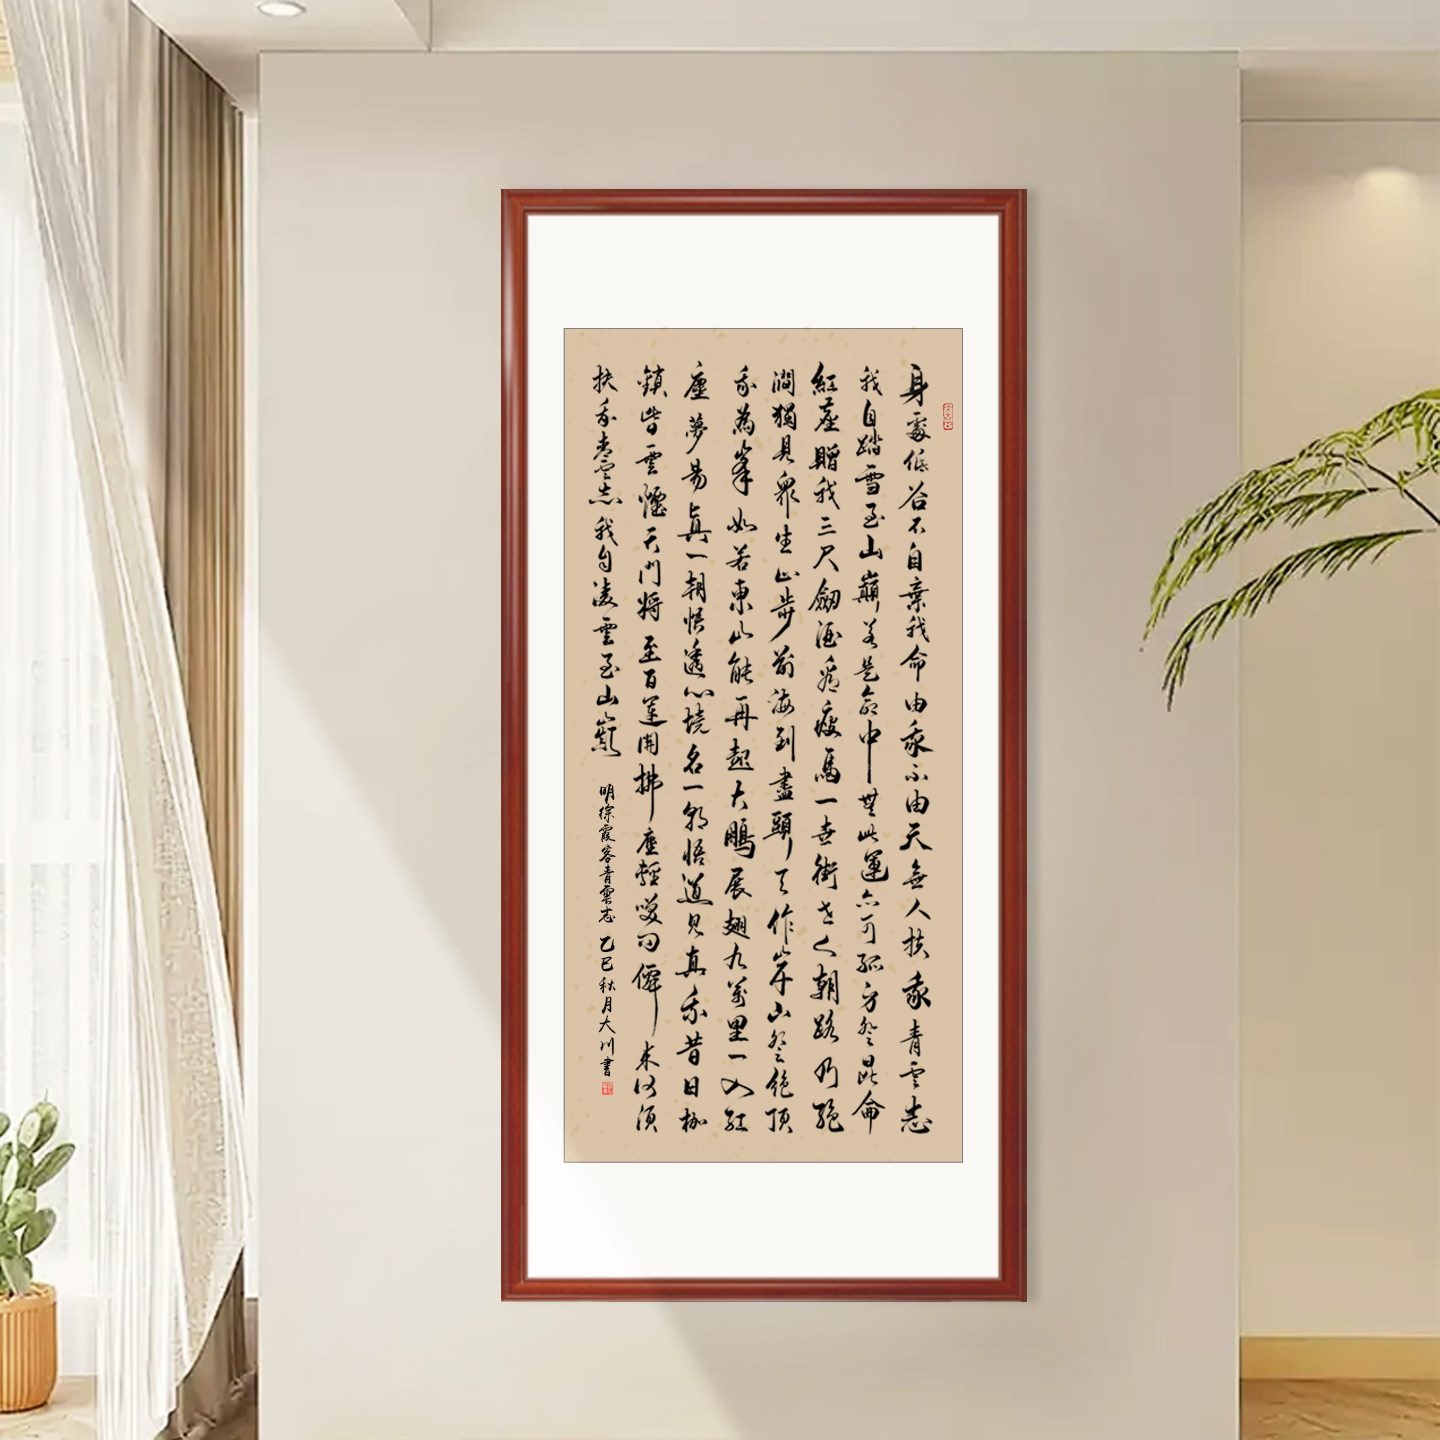 身處低谷不自棄我命由我不由天無人扶我青雲志
我自踏雪至山巔若是命中無此運亦可孤身登昆侖
紅塵贈我三尺劍酒肴瘦馬一世街世人朝路乃絕
澗獨見眾生止步前海到盡頭天作岸山登絕頂
我為峯如若東山能再起大鵬展翅九萬里一入紅
塵夢易真一朝悟透心境名一朝悟道見真我昔日枷
鎖皆雲煙天門將至百蓮開拂塵輕笑問僊來何須
扶我青雲志我自凌雲至山巔 明徐霞客青雲志 乙巳秋月大川書